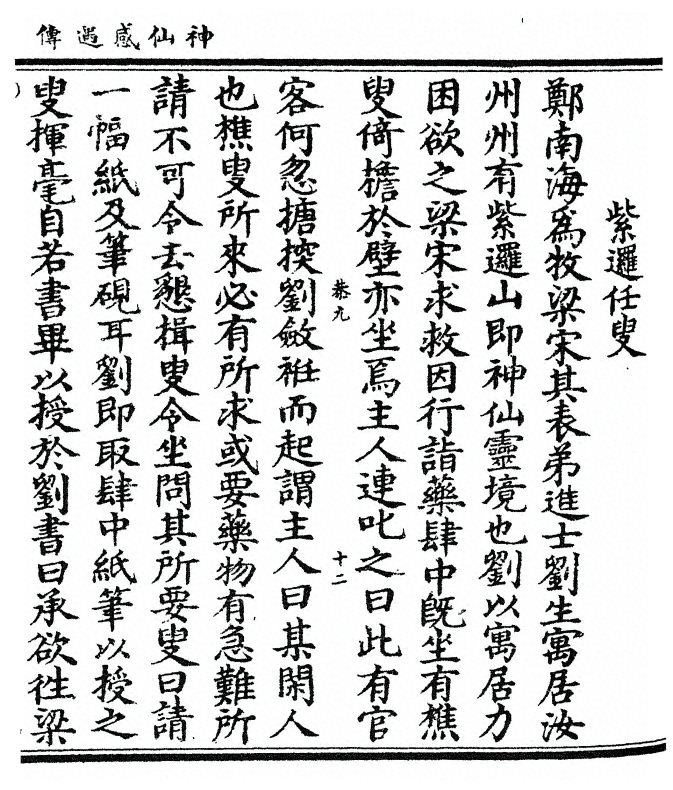 神仙感遇傳
紫邏任叟
鄭南海爲牧梁宋其表弟進士劉生寓居汝
州州有紫邏山即神仙靈境也劉以寓居力
困欲之梁宋求救因行詣藥肆中既坐有樵
叟倚檐於壁亦坐焉主人連叱之曰此有官
卷九
十二
客何忽搪揬劉斂袵而起謂主人曰某閑人
也樵叟所來必有所求或要藥物有急難所
請不可令去懇揖叟令坐問其所要叟曰請
一幅紙及筆硯耳劉即取肆中紙筆以授之
叟揮毫自若書畢以授於劉書曰承欲徃梁